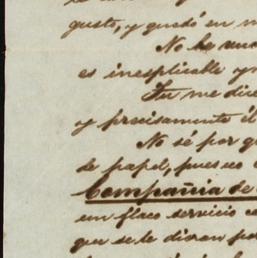 gusto, y quedó en m
No he
es inesplicable y
Tu me dice
y precisamente él
No sé por q
de papel, pues no
Compañia de
un flaco servicio
que se le dieran por